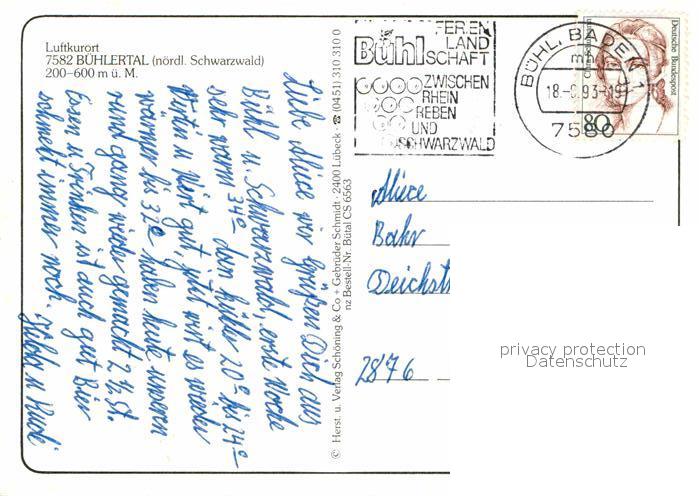 Luftkurort
7582 BÜHLERTAL (nördl. Schwarzwald)
200–600 m ü. M.
Liebe Aliece wir grüßen Dich aus
Bühl u. Schwarzwald, erste Woche
sehr warm 34° dan kühler 20° bis 24°
Wirtin u Wirt gut, jetzt wird es wieder
wärmer bis 32° haben heute unseren
rund gang wieder gemacht 2 ½ St.
Essen u Trinken ist auch gut Bier
schmekt immer noch.
© Herst. u. Verlag Schöning & Co + Gebrüder Schmidt · 2400 Lübeck · ☎ (0451) 310 310 0
nz Bestell-Nr. Bütal CS 6563
FERIEN
Bühl LAND
SCHAFT
ZWISCHEN
RHEIN
REBEN
UND
SCHWARZWALD
BÜHL, BADEN 1
mh
18.-8.93-19
7580
Deutsche Bundespost
80
Aliece
Bahr
Deichst
2876
privacy protection
Datenschutz